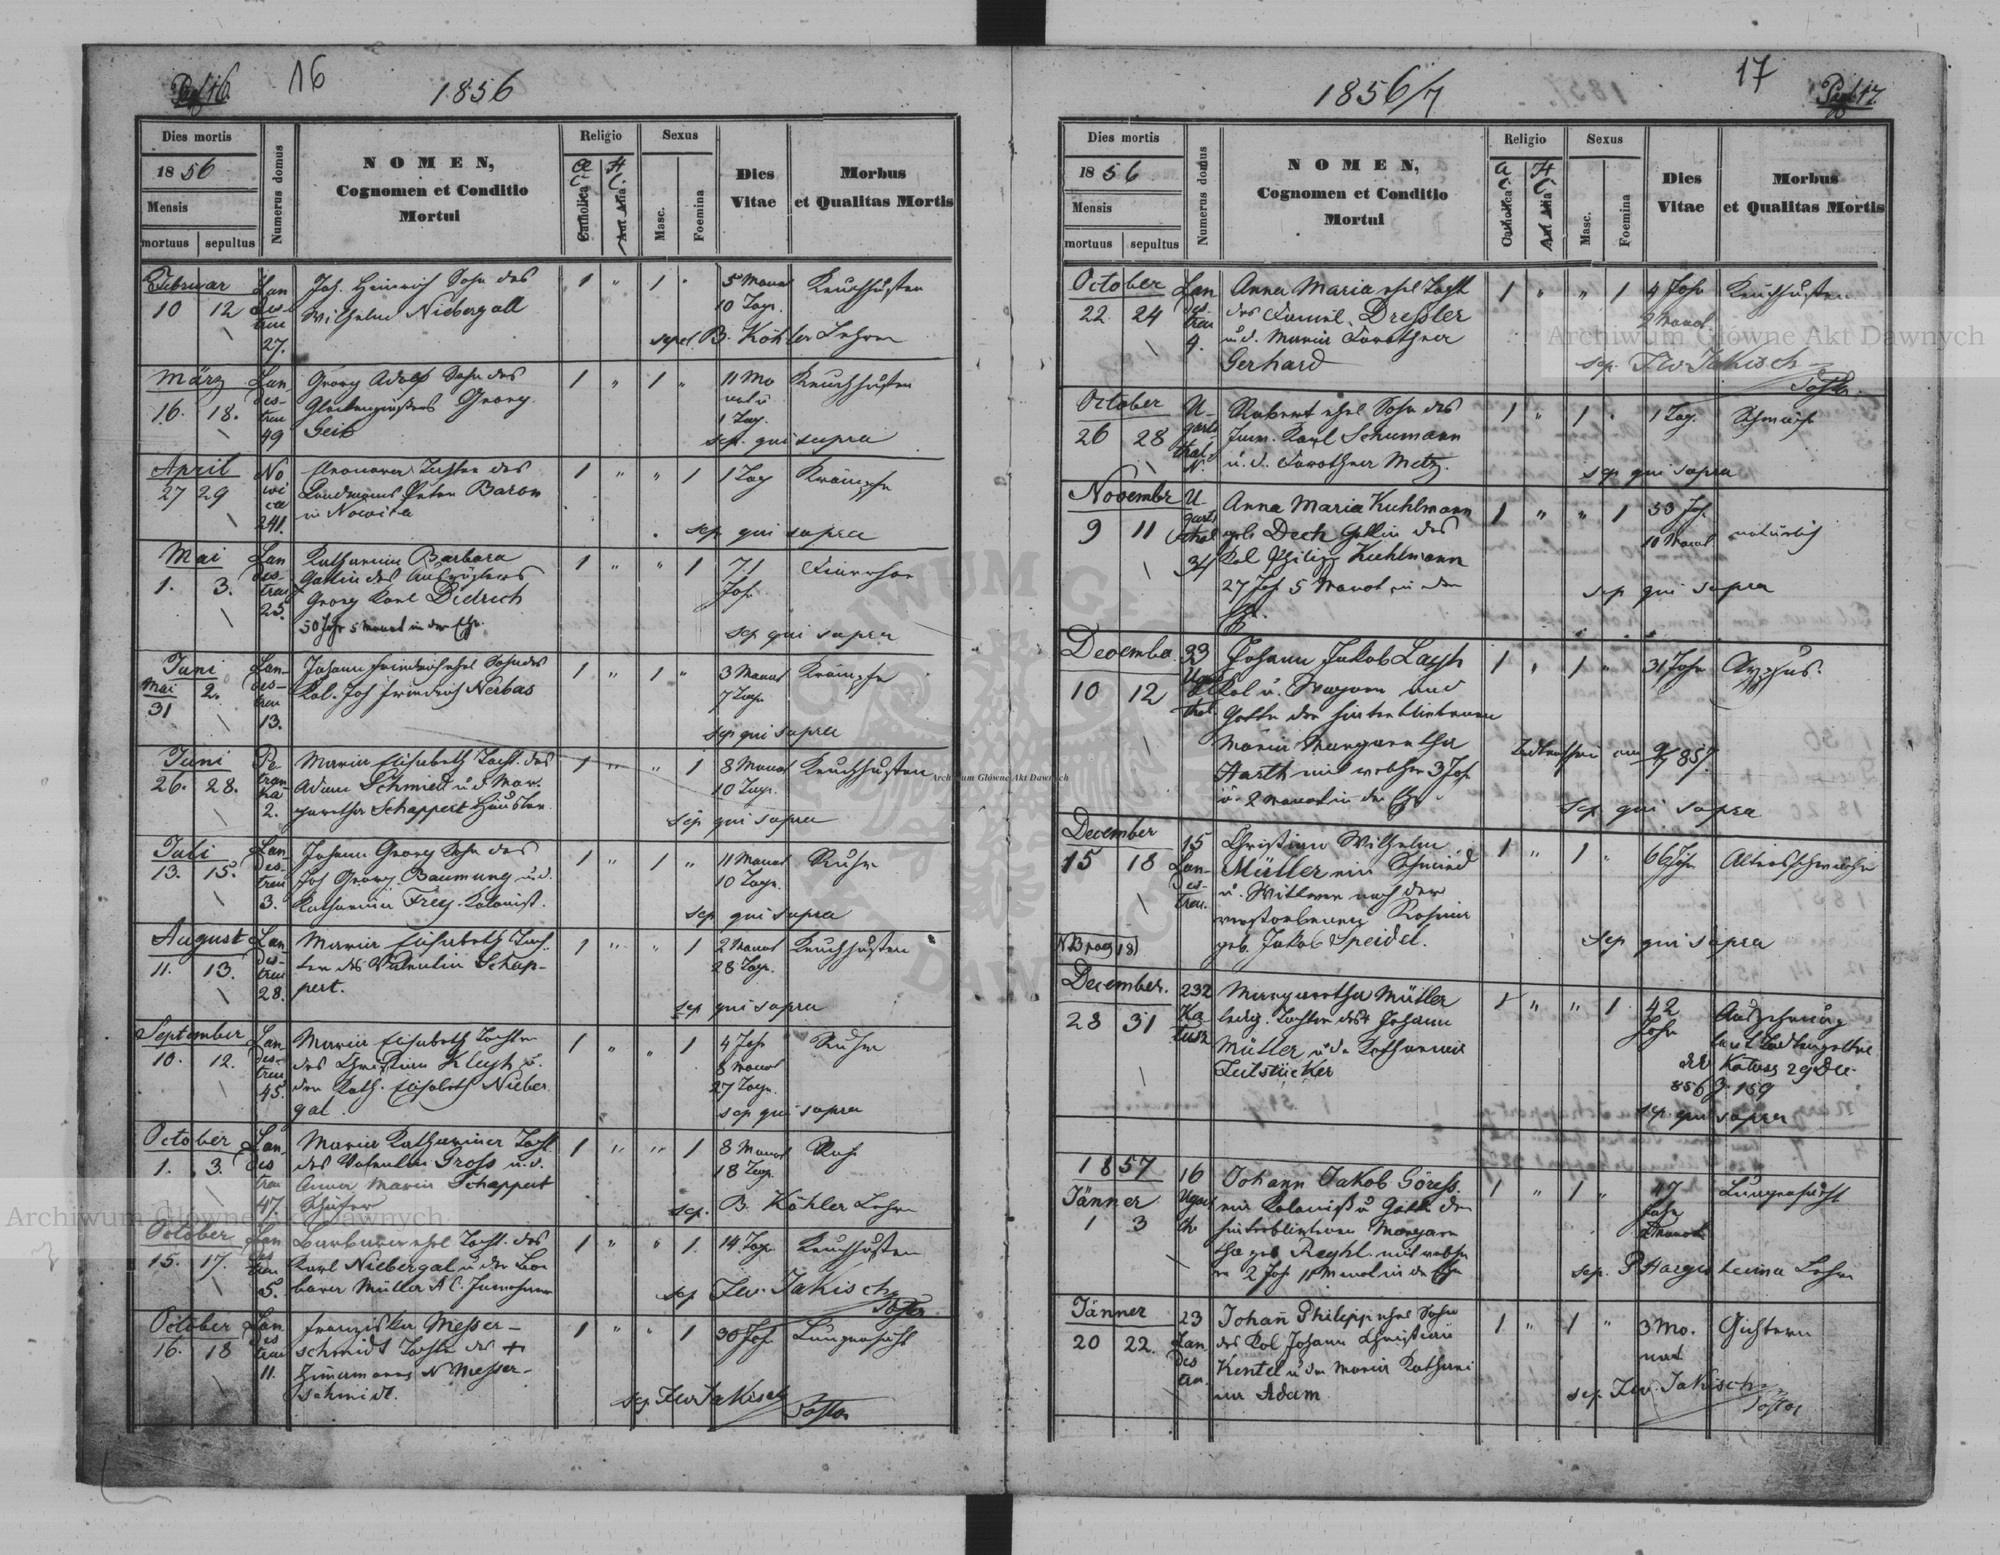 Pag 16.
16
1856
Dies mortis
1856
Mensis
mortuus
sepultus
Numerus domus
NOMEN,
Cognomen et Conditio
Mortui
Religio
Catholica
Aut Alia
A. C.
H. C.
Sexus
Masc.
Foemina
Dies
Vitae
Morbus
et Qualitas Mortis
Februar
10 12
Lan
des
treu
27.
Joh. Heinrich Sohn des
Wilhelm Niebergall
1 " 1 "
5 Monat
10 Tage.
Keuchhusten
sepel. B. Köhler Lehrer
März
16. 18.
Lan
des-
treu
49
Georg Adolf Sohn des
Glockengiessers Georg
Geib
1 " 1 "
11 Mo
nat u
1 Tag.
Keuchhusten
sep. qui supra
April
27 29
No
wi
ca
241.
Eleonora Tochter des
Landmanns Peter Baron
in Nowica
1 " " 1
1 Tag
Krämpfe
sep qui supra
Mai
1. 3.
Lan
des-
treu
25.
Katharina Barbara
Gattin des Auszüglers
Georg Karl Didrich
50 Jahr 5 Monat in der Ehe.
1 " " 1
71
Jahr
Diarrhoe
sep qui supra
Juni
Mai 2.
31
Lan-
des-
treu
13.
Johann Friedrich ehel Sohn des
Kol. Joh Friedrich Nerbas
1 " 1 "
3 Monat
7 Tage
Krämpfe
sep qui supra
Juni
26. 28.
Pe-
tran
ka
2.
Maria Elisabeth Tocht. des
Adam Schmied u. d. Mar-
garetha Schappert Häusler
1 " " 1
8 Monat
10 Tage.
Keuchhusten
sep qui supra
Juli
13. 15.
Lan-
des-
treu
3.
Johann Georg Sohn des
Joh Georg Baumung u. d.
Katharina Frey. Kolonist.
1 " 1 "
11 Monat
10 Tage.
Ruhr
sep qui supra
August
11. 13.
Lan
des-
treu
28.
Maria Elisabeth Toch-
ter des Valentin Schap-
pert.
1 " " 1
2 Monat
28 Tage.
Keuchhusten
sep qui supra
September
10. 12.
Lan
des-
treu
45.
Maria Elisabeth Tochter
des Christian Kleyh u.
der Kath. Elisabeth Nieber
gal.
1 " " 1
4 Jahr
8 Monat
27 Tage.
Ruhr
sep qui supra
October
1. 3.
Lan-
des
treu
47.
Maria Katharina Tocht
des Valentin Gross u. d.
Anna Maria Schappert
1 " " 1
8 Monat
18 Tage.
Ruhr
sep. B. Köhler Lehrer
October
15. 17.
Lan
des
treu
5.
Barbara ehel Tocht. des
Karl Niebergal u. der Bar
bara Müller A C. Inwohner
1 " " 1.
14 Tage
Keuchhusten
sep Flor. Jakisch
Pastor
October
16. 18
Lan
des
treu
11.
Franziska Messer-
schmidt Tochter des +
Zimermanns N Messer-
schmidt.
1 " " 1
30 Jahr
Lungensucht
sep Flor Jakisch
Pastor
1856/7
17
Pag 17.
Dies mortis
1856
Mensis
mortuus
sepultus
Numerus domus
NOMEN,
Cognomen et Conditio
Mortui
Religio
Catholica
Aut Alia
A C
H C
Sexus
Masc.
Foemina
Dies
Vitae
Morbus
et Qualitas Mortis
October
22. 24
Lan
des
treu
9.
Anna Maria ehel Tocht
des Daniel Dressler
u. d. Maria Dorothea
Gerhard
1 " " 1
4 Jahr
2 Monat.
Keuchhusten
sep. Flor Jakisch
Pastor.
October
26 28
U-
garts
thal
Robert ehel Sohn des
Inw. Karl Schumann
u. d. Dorothea Metz.
1 " 1 "
1 Tag.
Schwäche
sep qui supra
November
9 11
U-
garts
thal
34
Anna Maria Kuhlmann
geb. Dech Gattin des
Kol Philipp Kuhlmann
27 Jahr 5 Monat in der
Ehe.
1 " " 1
53 Jah.
10 Monat
natürlich
sep qui supra
December
10 12
33
Ugar
thal
Johann Jakob Layh
Kol u.
Gatte der hinterbliebenen
Maria Margaretha
Harth mit welcher 3 Jahr
u. 2 Monat in der Ehe.
1 " 1 "
31 Jahr
Typhus.
sep qui supra
December
15 18
15
Lan-
des-
treu.
Christian Wilhelm
Müller ein Schmied
u. Wittwer nach der
verstorbenen Rosina
geb. Jakob Speidel.
1 " 1 "
66 Jahr.
Altersschwäche
sep qui supra
NB pag 18
December.
28 31
232
Ka
lusz
Margaretha Müller
ledig. Tochter des + Johann
Müller u. d. Katharina
1 " " 1
42.
Jahr
Auszehrung
Kalusz 29 Dec.
856 Z. 159
sep. qui supra
1857
Jänner
1 3
16
Ugart
th
Johann Jakob Göress.
ein Kolonist u Gatte der
hinterbliebenen Margare
tha geb Reyhl. mit welche
r 2 Jahr 11 Monat in der Ehe
1 " 1 "
47
Jahr
Monat
Lungensucht
sep. P Hargesheima Lehrer
Jänner
20 22.
23
Lan
des
treu.
Johan̄ Philipp ehel Sohn
des Kol Johann Christian
Kentel u der Maria Kathari
na Adam
1 " 1 "
3 Mo.
nat
Gichtern
sep. Flor. Jakisch
Pastor
Archiwum Główne Akt Dawnych
Archiwum Główne Akt Dawnych
Archiwum Główne Akt Dawnych